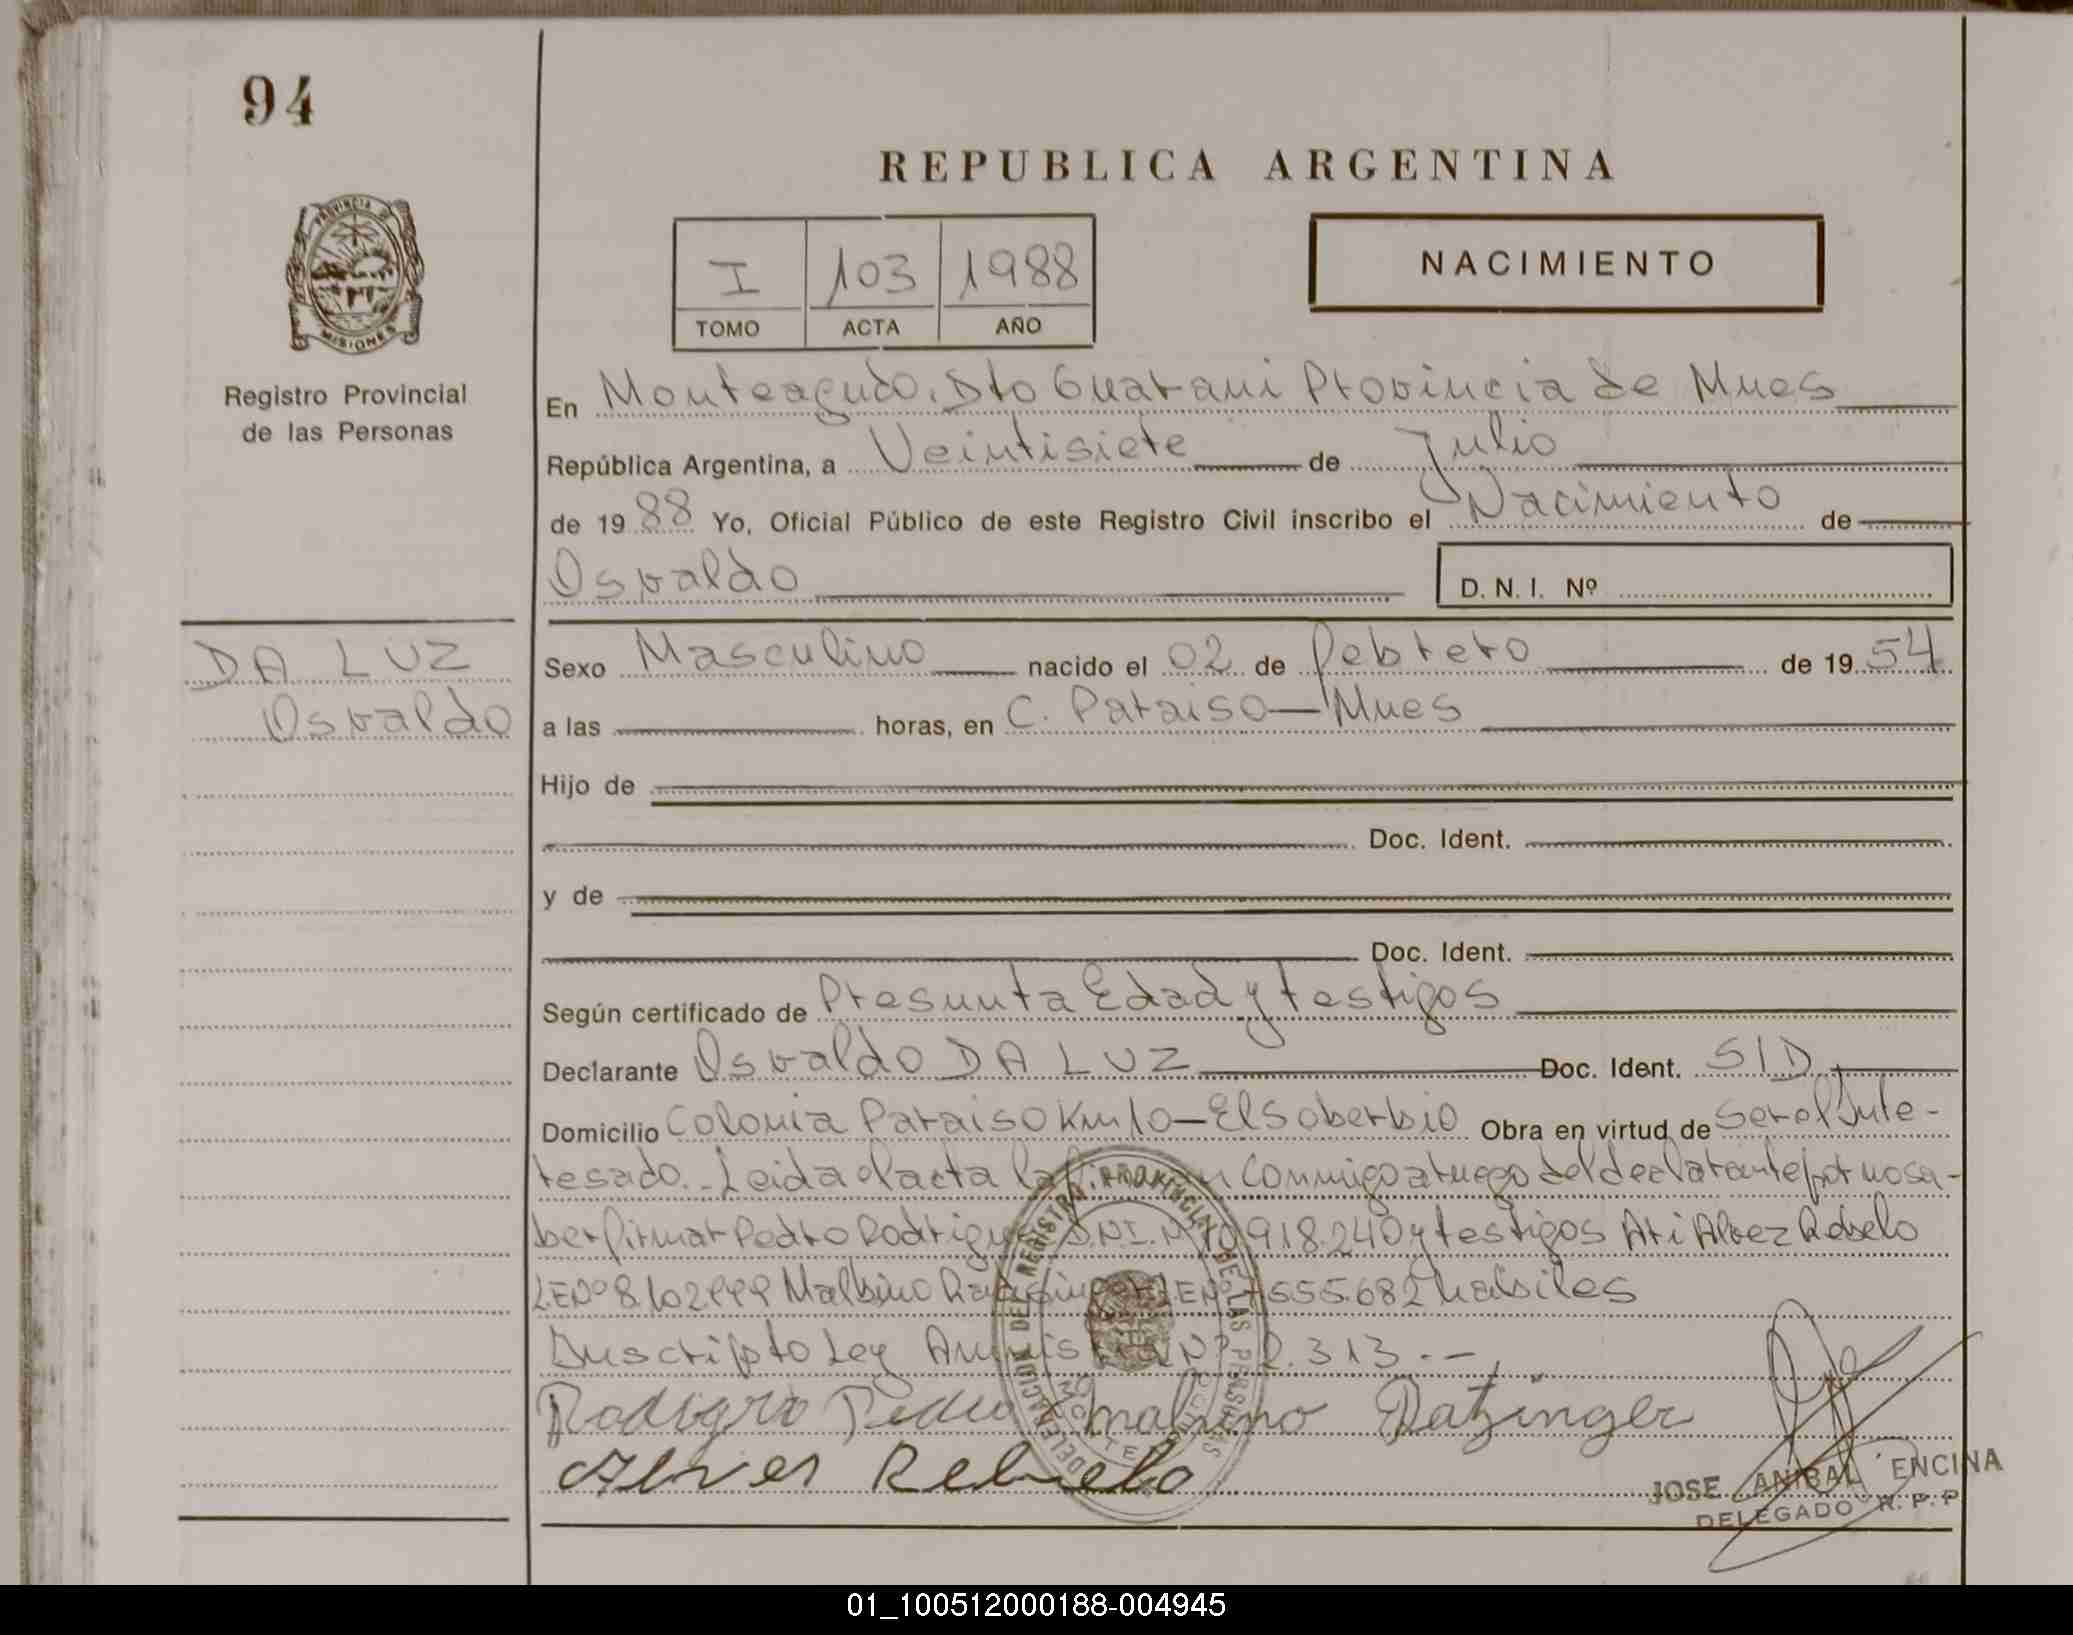 94
REPUBLICA ARGENTINA
PROVINCIA DE
MISIONES
Registro Provincial
de las Personas
I 103 1988
TOMO ACTA AÑO
NACIMIENTO
En Monteagudo. Dto Guarani Provincia de Mnes
República Argentina, a Veintisiete de Julio
de 19 88 Yo, Oficial Público de este Registro Civil inscribo el Nacimiento de
Osvaldo
D. N. I. Nº
DA LUZ
Osvaldo
Sexo Masculino nacido el 02 de febrero de 19 54
a las horas, en C. Paraiso—Mnes
Hijo de
Doc. Ident.
y de
Doc. Ident.
Según certificado de Presunta Edad y testigos
Declarante Osvaldo DA LUZ Doc. Ident. S/D
Domicilio Colonia Paraiso Km 10—El Soberbio Obra en virtud de ser el Inte-
resado.- Leida el acta la conmigo a ruego del declarante por no sa-
ber firmar Pedro Rodrigu D.N.I. Nº 10.918.240 y testigos Ari Alvez Rebelo
L.E Nº 8.102.999 Malbino 7.555.682 habiles
Inscripto Ley Nº 2.313.-
Rodigro Pedro Malvino Ratzinger
Alves Rebelo
DELEGACION DEL REGISTRO PROVINCIAL DE LAS PERSONAS
JOSE ANIBAL ENCINA
DELEGADO R. P. P
01_100512000188-004945